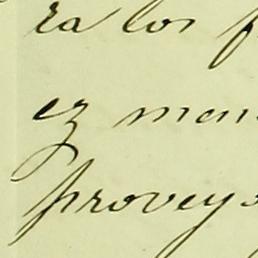 ra los
ez men
proveyo